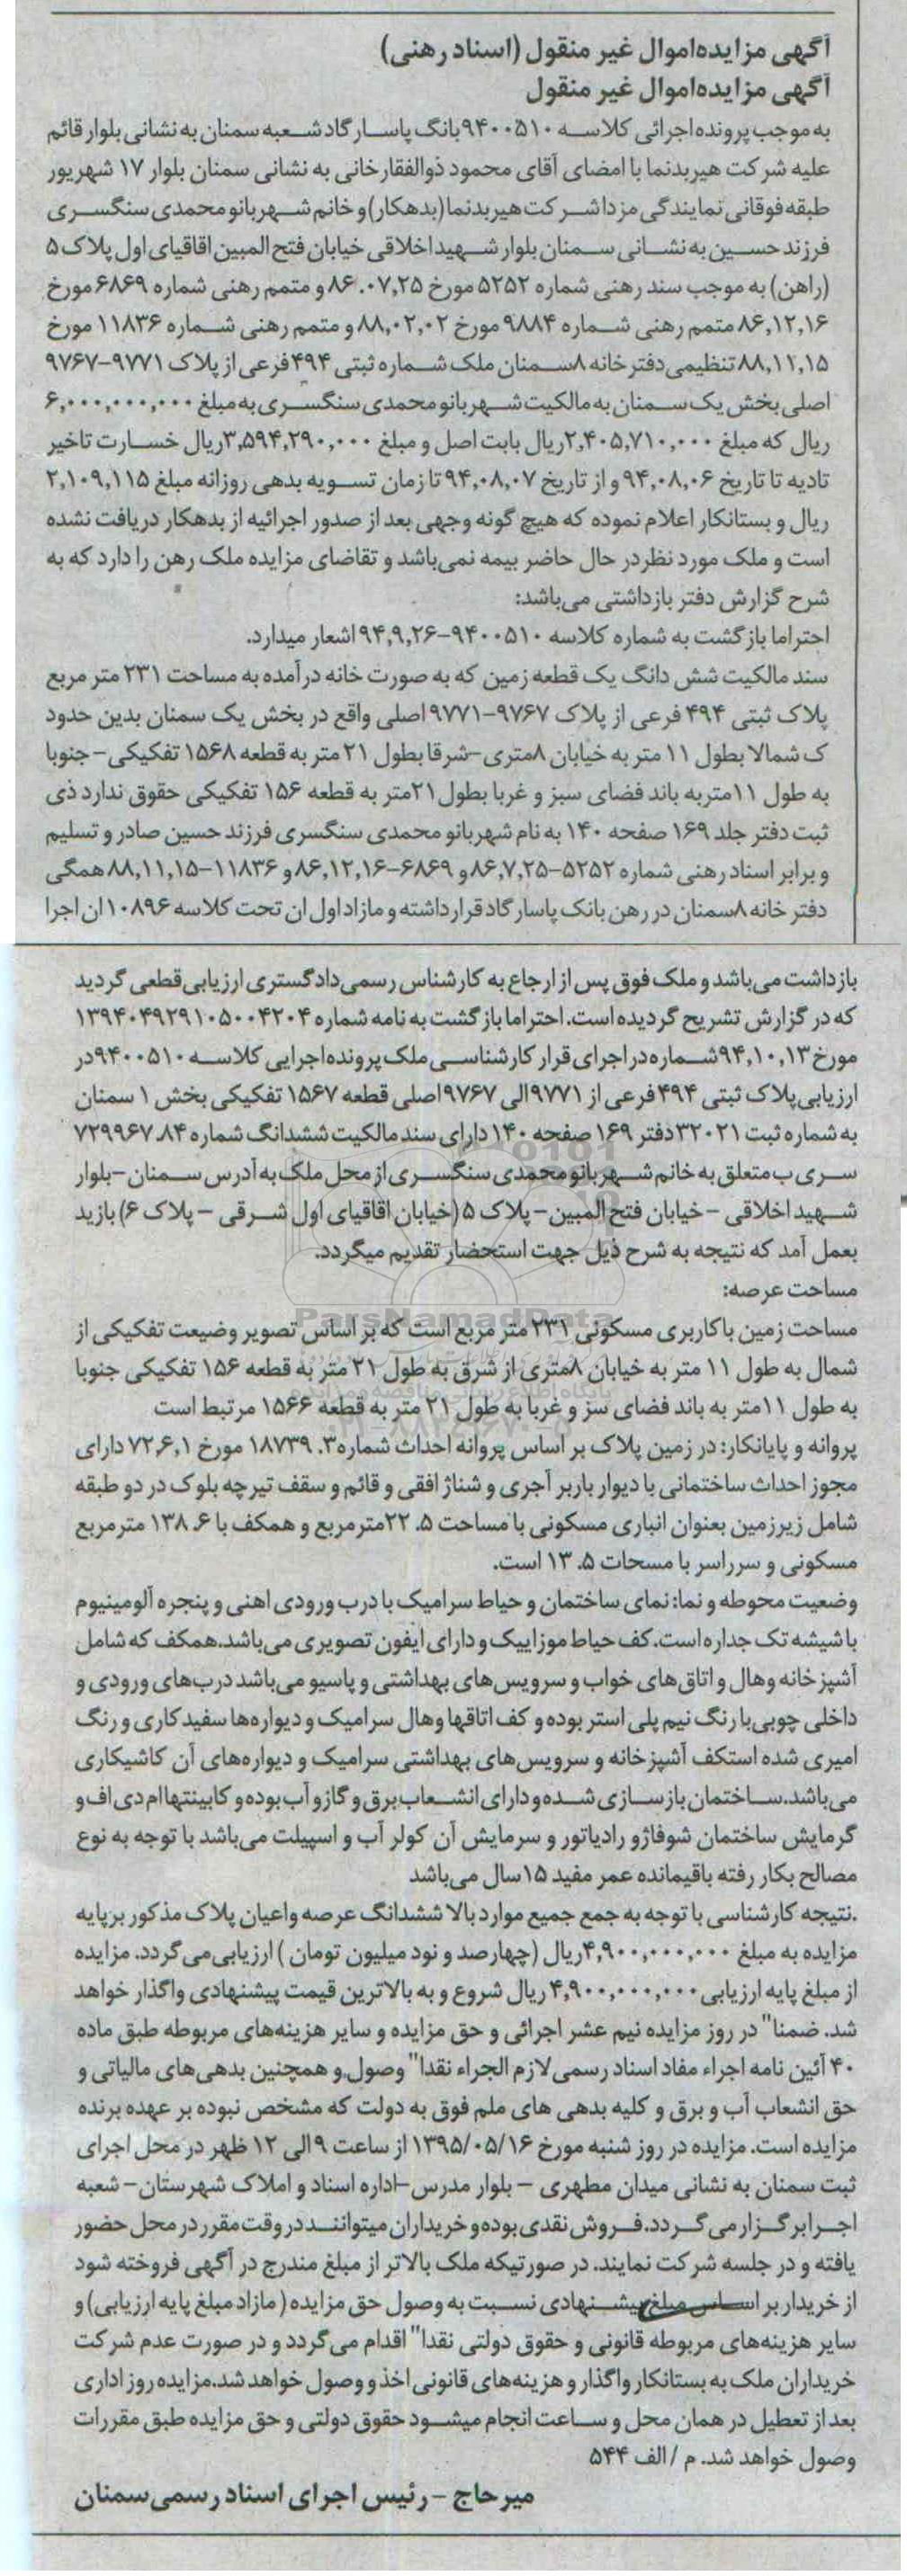 آگهی مزایده‌اموال غیر منقول (اسناد رهنی)
آگهی مزایده‌اموال غیر منقول
به موجب پرونده‌اجرائی کلاسه ۹۴۰۰۵۱۰بانک پاسارگاد شعبه سمنان به نشانی بلوار قائم
علیه شرکت هیربدنما با امضای آقای محمود ذوالفقارخانی به نشانی سمنان بلوار ۱۷ شهریور
طبقه فوقانی نمایندگی مزدا شرکت هیربدنما(بدهکار)و خانم شهربانو محمدی سنگسری
فرزند حسین به نشانی سمنان بلوار شهیداخلاقی خیابان فتح المبین اقاقیای اول پلاک ۵
(راهن) به موجب سند رهنی شماره ۵۲۵۲ مورخ ۸۶.۰۷,۲۵ و متمم رهنی شماره ۶۸۶۹مورخ
۸۶,۱۲,۱۶ متمم رهنی شماره ۹۸۸۴ مورخ ۸۸,۰۲,۰۲ و متمم رهنی شماره ۱۱۸۳۶ مورخ
۸۸,۱۱,۱۵ تنظیمی دفتر خانه ۸سمنان ملک شماره ثبتی ۴۹۴ فرعی از پلاک ۹۷۷۱-۹۷۶۷
اصلی بخش یک سمنان به مالکیت شهربانو محمدی سنگسری به مبلغ ۶,۰۰۰,۰۰۰,۰۰۰
ریال که مبلغ ۲,۴۰۵,۷۱۰,۰۰۰ریال بابت اصل و مبلغ ۳,۵۹۴,۲۹۰,۰۰۰ریال خسارت تاخیر
تادیه تا تاریخ ۹۴,۰۸,۰۶ و از تاریخ ۹۴,۰۸,۰۷ تا زمان تسویه بدهی روزانه مبلغ ۲,۱۰۹,۱۱۵
ریال و بستانکار اعلام نموده که هیچ گونه وجهی بعد از صدور اجرائیه از بدهکار دریافت نشده
است و ملک مورد نظردر حال حاضر بیمه نمی‌باشد و تقاضای مزایده ملک رهن را دارد که به
شرح گزارش دفتر بازداشتی می‌باشد:
احتراما بازگشت به شماره کلاسه ۹۴۰۰۵۱۰-۹۴,۹,۲۶ اشعار میدارد.
سند مالکیت شش دانگ یک قطعه زمین که به صورت خانه در آمده به مساحت ۲۳۱ متر مربع
پلاک ثبتی ۴۹۴ فرعی از پلاک ۹۷۶۷-۹۷۷۱ اصلی واقع در بخش یک سمنان بدین حدود
ک شمالا بطول ۱۱ متر به خیابان ۸متری-شرقا بطول ۲۱ متر به قطعه ۱۵۶۸ تفکیکی-جنوبا
به طول ۱۱متربه باند فضای سبز و غربا بطول۲۱متر به قطعه ۱۵۶ تفکیکی حقوق ندارد ذی
ثبت دفتر جلد ۱۶۹ صفحه ۱۴۰ به نام شهربانو محمدی سنگسری فرزند حسین صادر و تسلیم
و برابر اسناد رهنی شماره ۵۲۵۲-۸۶,۷,۲۵و ۶۸۶۹-۸۶,۱۲,۱۶و ۱۱۸۳۶-۸۸,۱۱,۱۵همگی
دفتر خانه ۸سمنان در رهن بانک پاسارگاد قرار داشته و مازاد اول ان تحت کلاسه ۱۰۸۹۶ ان اجرا
بازداشت می‌باشد و ملک فوق پس از ارجاع به کارشناس رسمی دادگستری ارزیابی قطعی گردید
که در گزارش تشریح گردیده است. احتراما بازگشت به نامه شماره ۱۳۹۴۰۴۹۲۹۱۰۵۰۰۴۲۰۴
مورخ ۹۴,۱۰,۱۳شماره در اجرای قرار کارشناسی ملک پرونده‌اجرایی کلاسه ۹۴۰۰۵۱۰در
ارزیابی پلاک ثبتی ۴۹۴ فرعی از ۹۷۷۱الی ۹۷۶۷اصلی قطعه ۱۵۶۷ تفکیکی بخش ۱ سمنان
به شماره ثبت ۳۲۰۲۱دفتر ۱۶۹ صفحه ۱۴۰ دارای سند مالکیت ششدانگ شماره ۸۴. ۷۲۹۹۶۷
سری ب متعلق به خانم شهربانو محمدی سنگسری از محل ملک به آدرس سمنان-بلوار
شهید اخلاقی-خیابان فتح المبین-پلاک ۵ (خیابان اقاقیای اول شرقی - پلاک ۶) بازید
بعمل آمد که نتیجه به شرح ذیل جهت استحضار تقدیم میگردد.
مساحت عرصه:
مساحت زمین با کاربری مسکونی ۲۳۱ متر مربع است که بر اساس تصویر وضیعت تفکیکی از
شمال به طول ۱۱ متر به خیابان ۸متری از شرق به طول ۲۱ متر به قطعه ۱۵۶ تفکیکی جنوبا
به طول ۱۱متر به باند فضای سز و غربا به طول ۲۱ متر به قطعه ۱۵۶۶ مرتبط است
پروانه و پایانکار: در زمین پلاک بر اساس پروانه احداث شماره۳. ۱۸۷۳۹ مورخ ۷۲,۶,۱ دارای
مجوز احداث ساختمانی با دیوار باربر آجری و شناژ افقی و قائم و سقف تیرچه بلوک در دو طبقه
شامل زیرزمین بعنوان انباری مسکونی با مساحت ۵. ۲۲مترمربع و همکف با ۶. ۱۳۸ مترمربع
مسکونی و سرراسر با مسحات ۵. ۱۳ است.
وضعیت محوطه و نما: نمای ساختمان و حیاط سرامیک با درب ورودی اهنی و پنجره آلومینیوم
با شیشه تک جداره است. کف حیاط موزاییک و دارای ایفون تصویری می‌باشد.همکف که شامل
آشپزخانه وهال و اتاق‌های خواب و سرویس‌های بهداشتی و پاسیو می‌باشد درب‌های ورودی و
داخلی چوبی با رنگ نیم پلی استر بوده و کف اتاقها وهال سرامیک و دیواره‌ها سفید کاری و رنگ
امیری شده استکف آشپزخانه و سرویس‌های بهداشتی سرامیک و دیواره‌های آن کاشیکاری
می‌باشد.ساختمان بازسازی شده و دارای انشعاب برق و گاز و آب بوده و کابینتهاام دی اف و
گرمایش ساختمان شوفاژو رادیاتور و سرمایش آن کولر آب و اسپیلت می‌باشد با توجه به نوع
مصالح بکار رفته باقیمانده عمر مفید ۱۵سال می‌باشد
.نتیجه کارشناسی با توجه به جمع جمیع موارد بالا ششدانگ عرصه واعیان پلاک مذکور برپایه
مزایده به مبلغ ۴,۹۰۰,۰۰۰,۰۰۰ریال (چهارصد و نود میلیون تومان ) ارزیابی می گردد. مزایده
از مبلغ پایه ارزیابی۴,۹۰۰,۰۰۰,۰۰۰ ریال شروع و به بالاترین قیمت پیشنهادی واگذار خواهد
شد. ضمنا" در روز مزایده نیم عشر اجرائی و حق مزایده و سایر هزینه‌های مربوطه طبق ماده
۴۰ آئین نامه اجراء مفاد اسناد رسمی لازم الجراء نقدا" وصول و همچنین بدهی‌های مالیاتی و
حق انشعاب آب و برق و کلیه بدهی های ملم فوق به دولت که مشخص نبوده بر عهده برنده
مزایده است. مزایده در روز شنبه مورخ ۱۳۹۵/۰۵/۱۶ از ساعت ۹الی ۱۲ ظهر در محل اجرای
ثبت سمنان به نشانی میدان مطهری - بلوار مدرس-اداره اسناد و املاک شهرستان- شعبه
اجرا برگزار می گردد.فروش نقدی بوده و خریداران میتوانند در وقت مقرر در محل حضور
یافته و در جلسه شرکت نمایند. در صورتیکه ملک بالاتر از مبلغ مندرج در آگهی فروخته شود
از خریدار بر اساس مبلغ پیشنهادی نسبت به وصول حق مزایده ( مازاد مبلغ پایه ارزیابی) و
سایر هزینه‌های مربوطه قانونی و حقوق دولتی نقدا" اقدام می گردد و در صورت عدم شرکت
خریداران ملک به بستانکار واگذار و هزینه‌های قانونی اخذ و وصول خواهد شد.مزایده روز اداری
بعد از تعطیل در همان محل و ساعت انجام میشود حقوق دولتی و حق مزایده طبق مقررات
وصول خواهد شد. م / الف ۵۴۴
میرحاج - رئیس اجرای اسناد رسمی سمنان
ParsNamadData